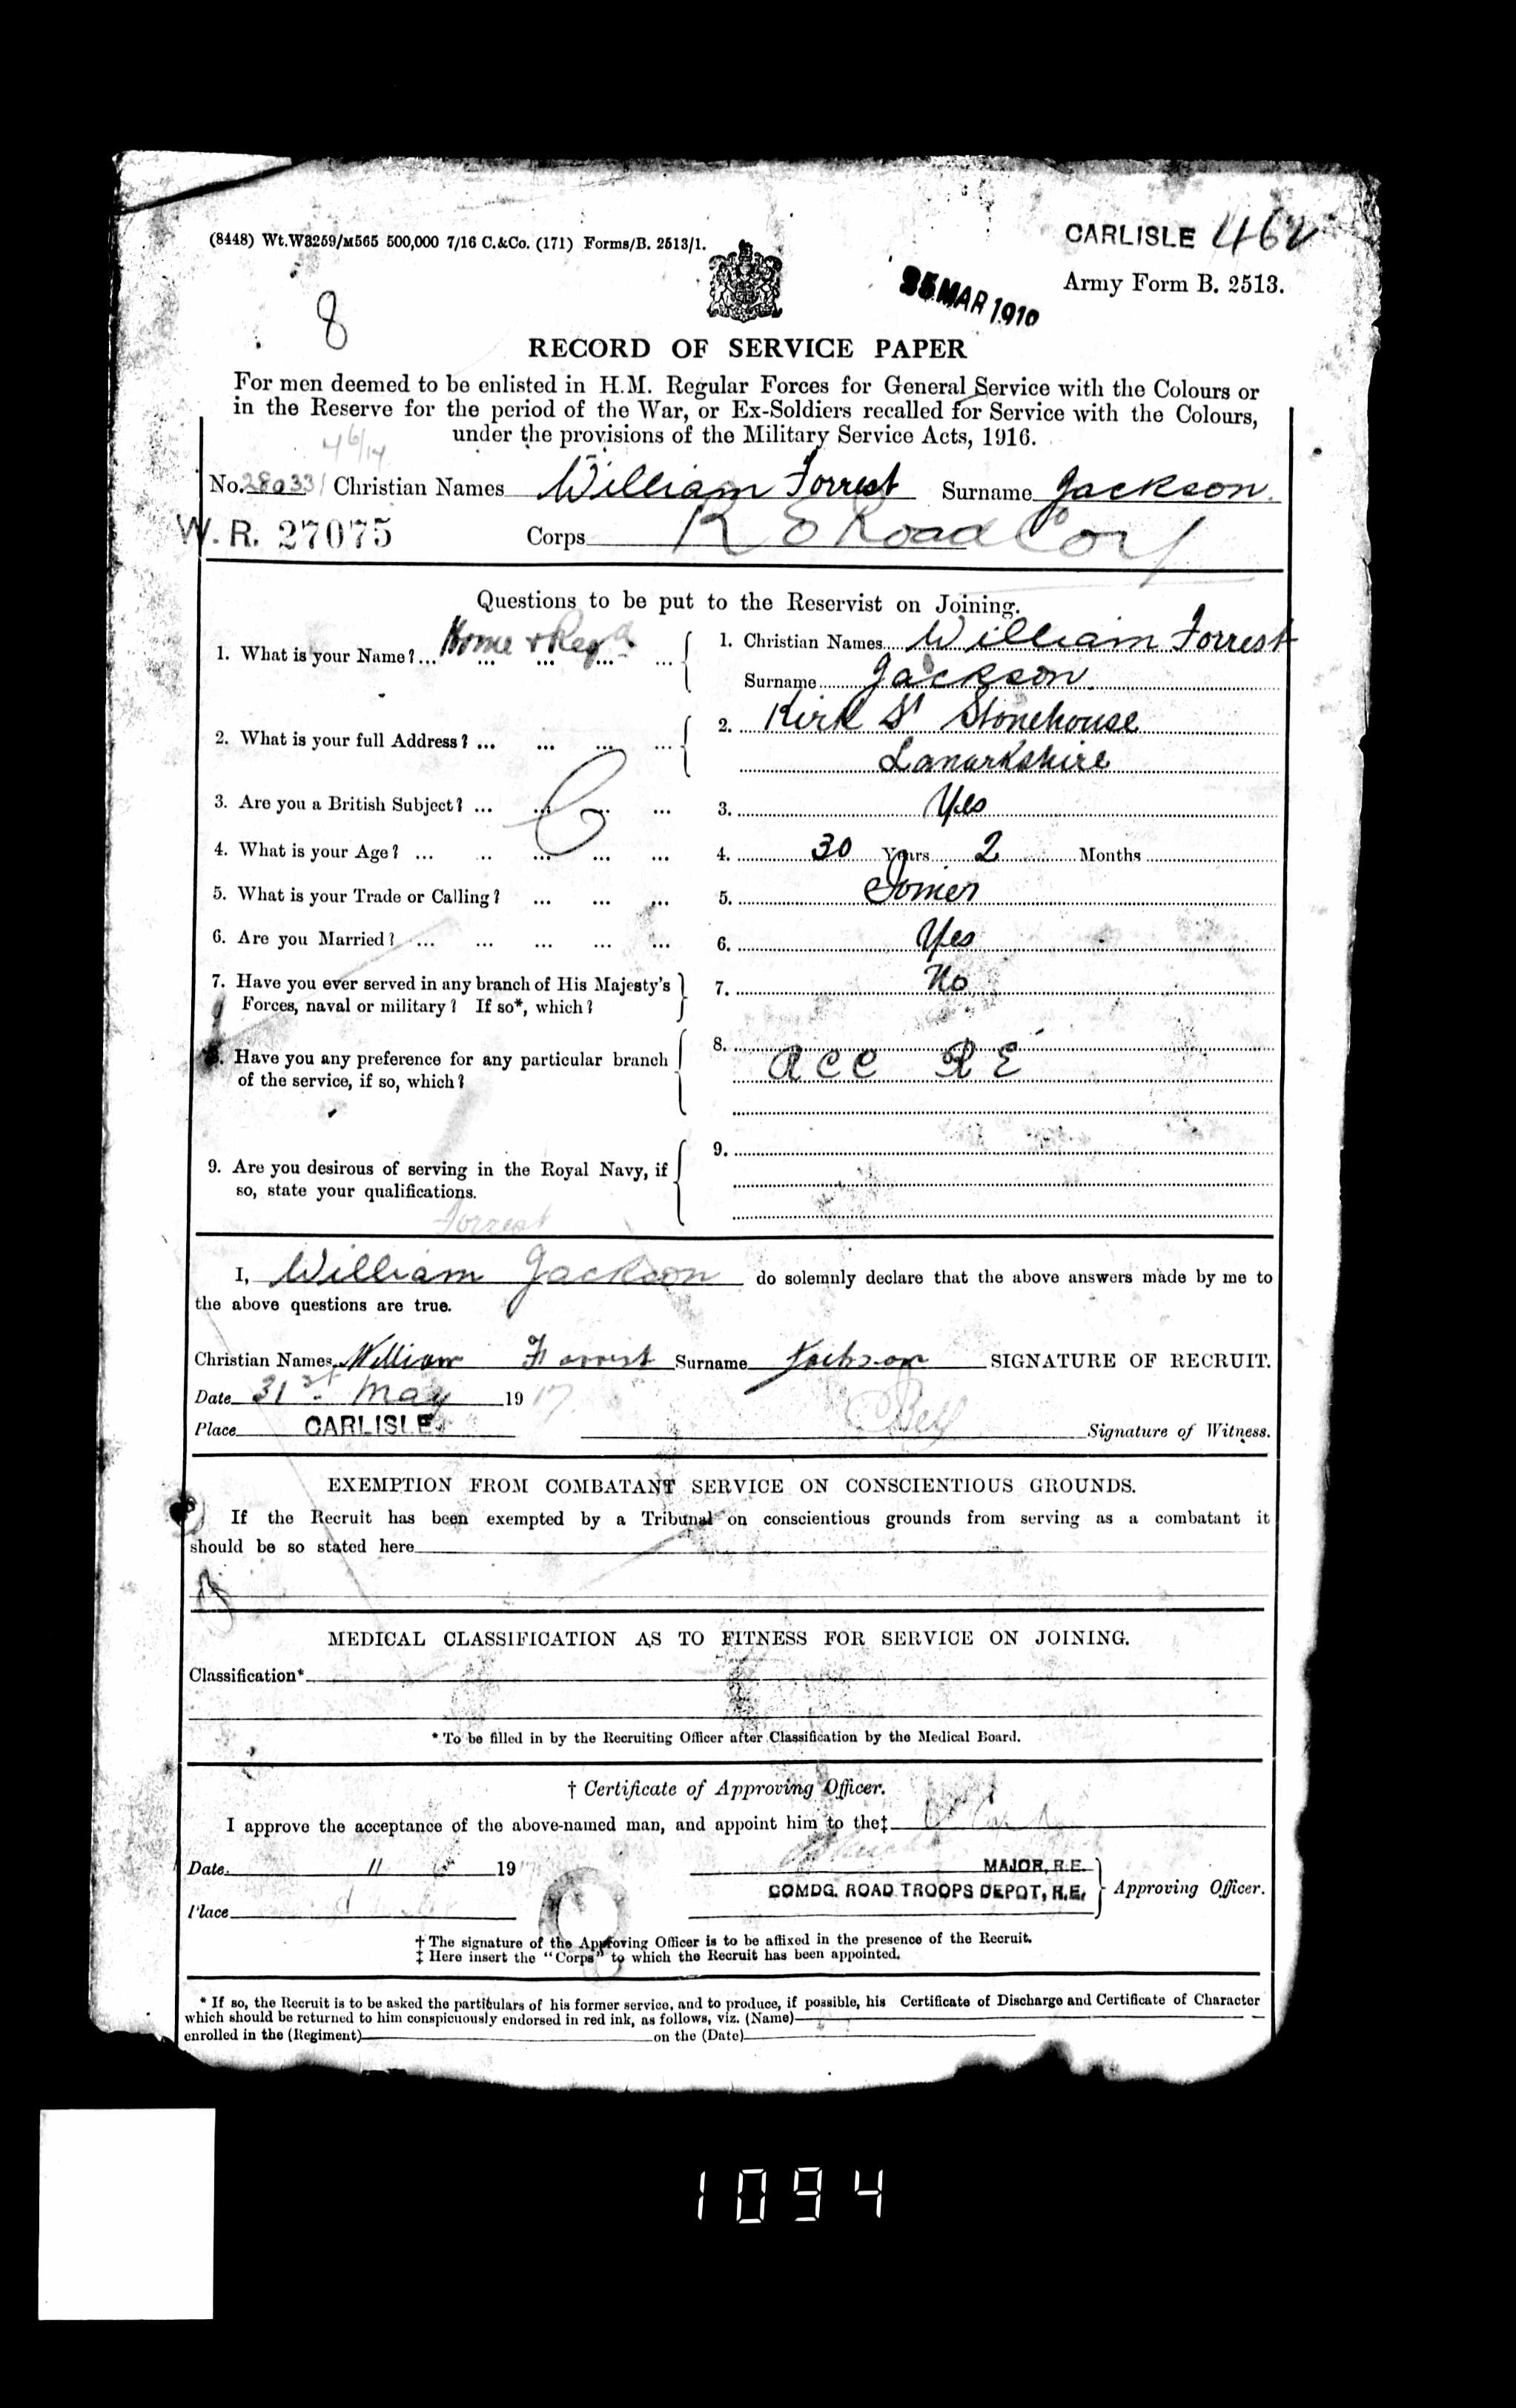 (8448) Wt.W3259/M565 500,000 7/16 C.&Co. (171) Forms/B. 2513/1.
CARLISLE 462
Army Form B. 2513.
MAR 1910
8
RECORD OF SERVICE PAPER
For men deemed to be enlisted in H.M. Regular Forces for General Service with the Colours or
in the Reserve for the period of the War, or Ex-Soldiers recalled for Service with the Colours,
under the provisions of the Military Service Acts, 1916.
No. 280331 Christian Names William Forrest Surname Jackson.
W.R. 27075 Corps R E Road Coy
Questions to be put to the Reservist on Joining.
1. What is your Name?... Home ... ... ... 1. Christian Names William Forrest
Surname Jackson
2. What is your full Address? ... ... ... ... 2. Kirk St Stonehouse
Lanarkshire
3. Are you a British Subject? ... ... ... ... 3. Yes
4. What is your Age? ... ... ... ... ... 4. 30 Years 2 Months
5. What is your Trade or Calling? ... ... ... 5. Joiner
6. Are you Married? ... ... ... ... ... 6. Yes
7. Have you ever served in any branch of His Majesty's 7. No
Forces, naval or military? If so*, which?
8. Have you any preference for any particular branch 8. ACC RE
of the service, if so, which?
9. Are you desirous of serving in the Royal Navy, if 9.
so, state your qualifications.
Forrest
I, William Jackson do solemnly declare that the above answers made by me to
the above questions are true.
Christian Names William Forrest Surname Jackson SIGNATURE OF RECRUIT.
Date 31st May 1917.
Place CARLISLE. Bell Signature of Witness.
EXEMPTION FROM COMBATANT SERVICE ON CONSCIENTIOUS GROUNDS.
If the Recruit has been exempted by a Tribunal on conscientious grounds from serving as a combatant it
should be so stated here
MEDICAL CLASSIFICATION AS TO FITNESS FOR SERVICE ON JOINING.
Classification*
* To be filled in by the Recruiting Officer after Classification by the Medical Board.
† Certificate of Approving Officer.
I approve the acceptance of the above-named man, and appoint him to the‡
Date 11 19 MAJOR, R.E.
COMDG. ROAD TROOPS DEPOT, R.E. Approving Officer.
Place
† The signature of the Approving Officer is to be affixed in the presence of the Recruit.
‡ Here insert the "Corps" to which the Recruit has been appointed.
* If so, the Recruit is to be asked the particulars of his former service, and to produce, if possible, his Certificate of Discharge and Certificate of Character
which should be returned to him conspicuously endorsed in red ink, as follows, viz. (Name)
enrolled in the (Regiment) on the (Date)
1094